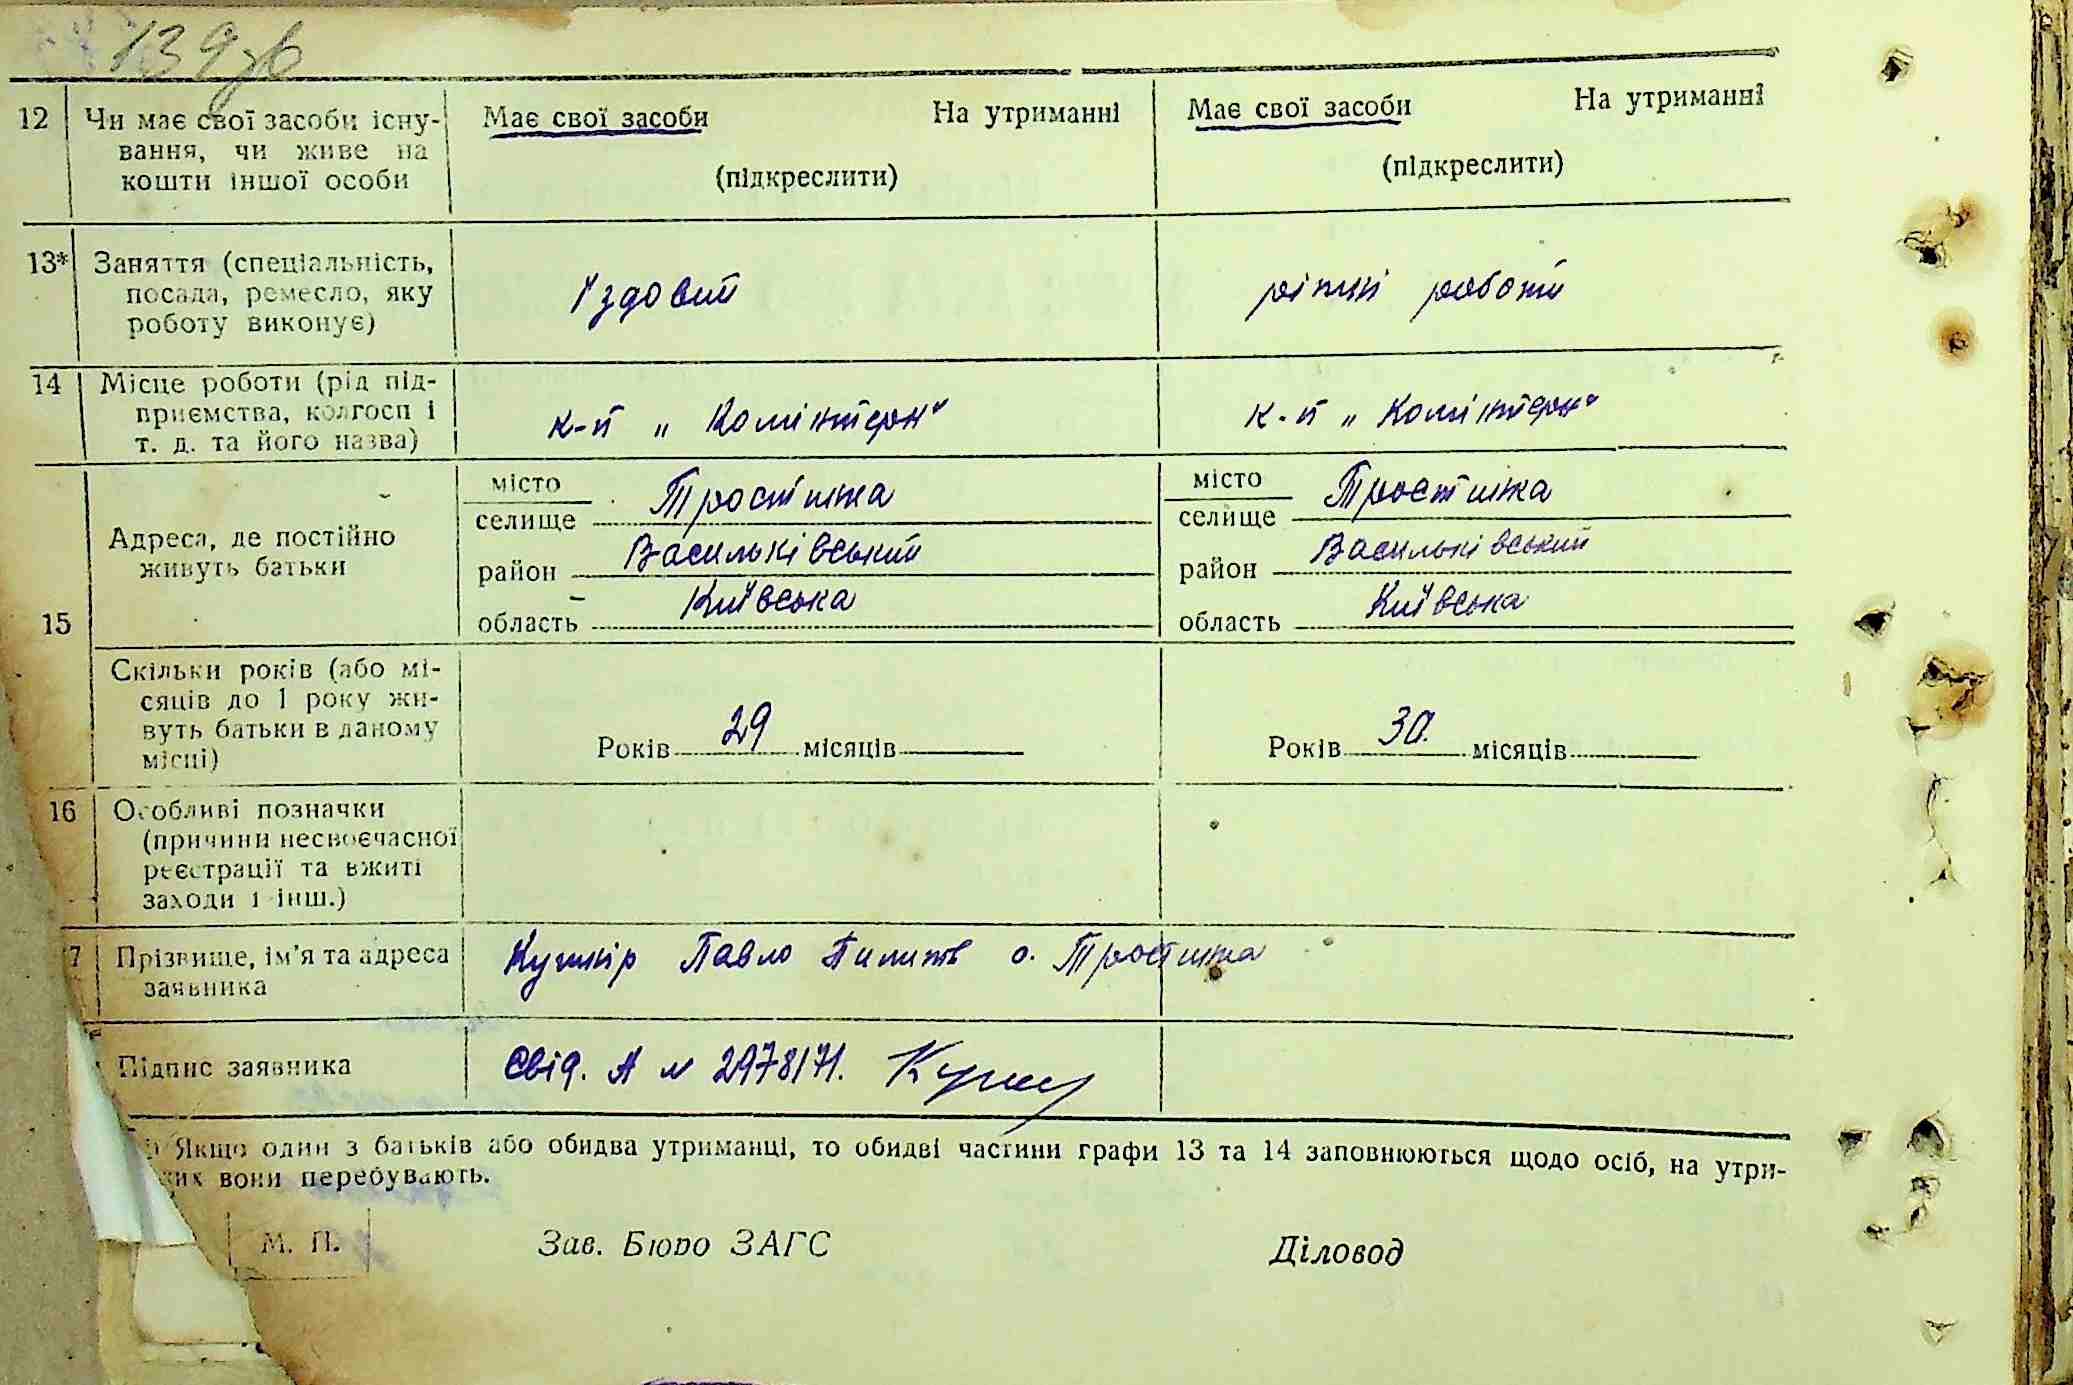 139зв
12 Чи має свої засоби існу- Має свої засоби На утриманні Має свої засоби На утриманні
вання, чи живе на
кошти іншої особи (підкреслити) (підкреслити)
13* Заняття (спеціальність,
посада, ремесло, яку їздовий різні роботи
роботу виконує)
14 Місце роботи (рід під-
приємства, колгосп і к-п „Комінтерн" к-п „Комінтерн"
т. д. та його назва)
місто Тростинка місто Тростинка
селище селище
Адреса, де постійно Васильківський Васильківський
живуть батьки район район
Київська Київська
15 область область
Скільки років (або мі-
сяців до 1 року жи-
вуть батьки в даному Років 29 місяців Років 30. місяців
місці)
16 Особливі позначки
(причини несвоєчасної
реєстрації та вжиті
заходи і інш.)
7 Прізвище, ім'я та адреса Кушнір Павло с. Тростинка
заявника
Підпис заявника Свід. А № 2978171.
) Якщо один з батьків або обидва утриманці, то обидві частини графи 13 та 14 заповнюються щодо осіб, на утри-
ких вони перебувають.
М. П. Зав. Бюро ЗАГС Діловод